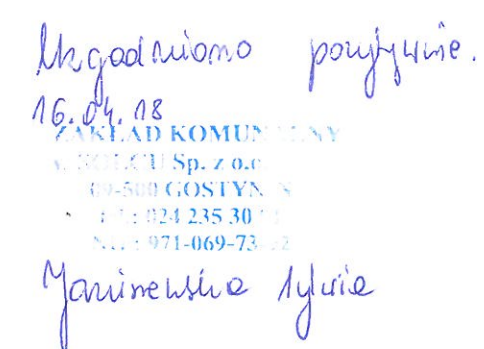 Uzgodniono pozytywnie.
16.04.18
ZAKŁAD KOMUNALNY
Sp. z o.o.
09-500 GOSTYNIN
024 235 30
971-069-73-
Janiszewska Sylwia